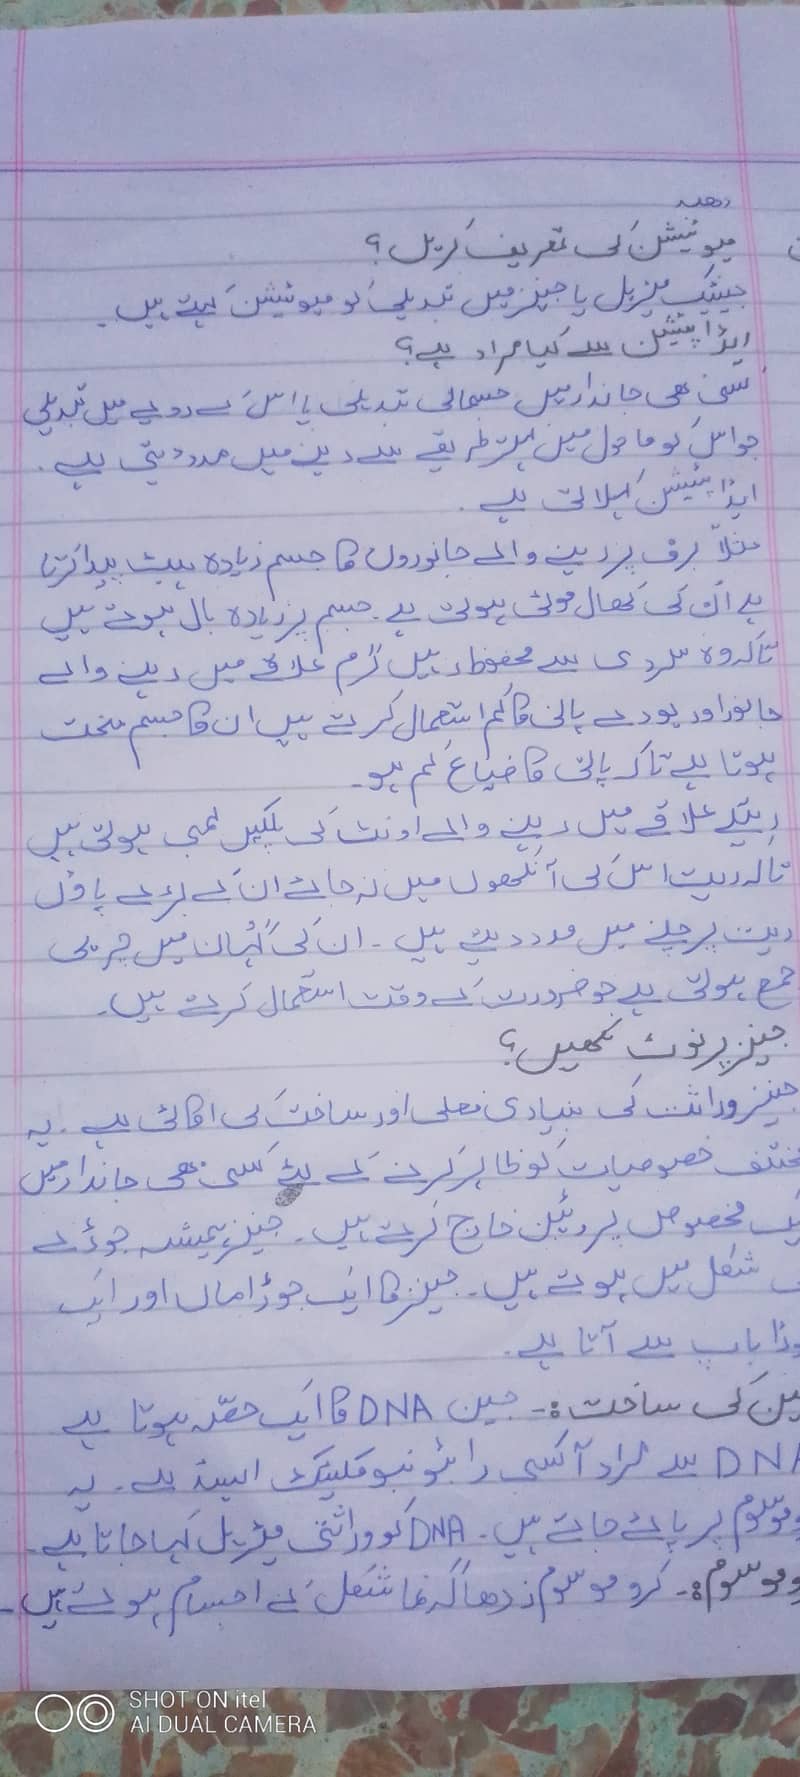 میوٹیشن کی تعریف کریں؟
جینیٹک میٹریل یا جینز میں تبدیلی کو میوٹیشن کہتے ہیں۔
ایڈاپٹیشن سے کیا مراد ہے؟
کسی بھی جاندار میں جسمانی تبدیلی یا اس کے رویے میں تبدیلی
جو اس کو ماحول میں بہتر طریقے سے رہنے میں مدد دیتی ہے۔
ایڈاپٹیشن کہلاتی ہے۔
مثلاً برف پر رہنے والے جانوروں کا جسم زیادہ ہیٹ پیدا کرتا
ہے اُن کی کھال موٹی ہوتی ہے۔ جسم پر زیادہ بال ہوتے ہیں
تاکہ وہ سردی سے محفوظ رہیں گرم علاقے میں رہنے والے
جانور اور پودے پانی کا کم استعمال کرتے ہیں ان کا جسم سخت
ہوتا ہے تاکہ پانی کا ضیاع کم ہو۔
ریتلے علاقے میں رہنے والے اونٹ کی پلکیں لمبی ہوتی ہیں
تاکہ ریت اس کی آنکھوں میں نہ جائے ان کے بڑے پاؤں
ریت پر چلنے میں مدد دیتے ہیں۔ ان کی کُہان میں چربی
جمع ہوتی ہے جو ضرورت کے وقت استعمال کرتے ہیں۔
جینز پر نوٹ لکھیں؟
جینز وراثت کی بنیادی فعلی اور ساخت کی اکائی ہے۔ یہ
مختلف خصوصیات کو ظاہر کرنے کے لئے کسی بھی جاندار میں
ایک مخصوص پروٹین خارج کرتے ہیں۔ جینز ہمیشہ جوڑے
کی شکل میں ہوتے ہیں۔ جینز کا ایک جوڑا ماں اور ایک
جوڑا باپ سے آتا ہے۔
جین کی ساخت:۔ جین DNA کا ایک حصّہ ہوتا ہے
DNA سے مراد آکسی رائبو نیوکلیئک ایسڈ ہے۔ یہ
کروموسوم پر پائے جاتے ہیں۔ DNA کو وراثتی میٹریل کہا جاتا ہے۔
کروموسوم:۔ کروموسوم دھاگہ نما شکل کے اجسام ہوتے ہیں۔